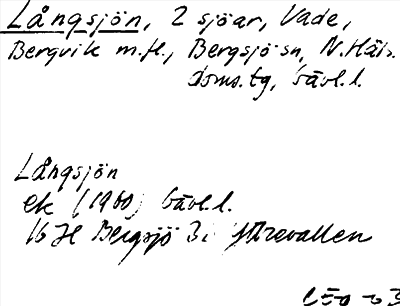 Långsjön, 2 sjöar, Vade,
Bergvik m.fl., Bergsjö sn, N. Häls.
doms.tg, Gävl.l.
Långsjön
ek (1960) Gävl.l.
16H Bergsjö 3i Yttrevallen